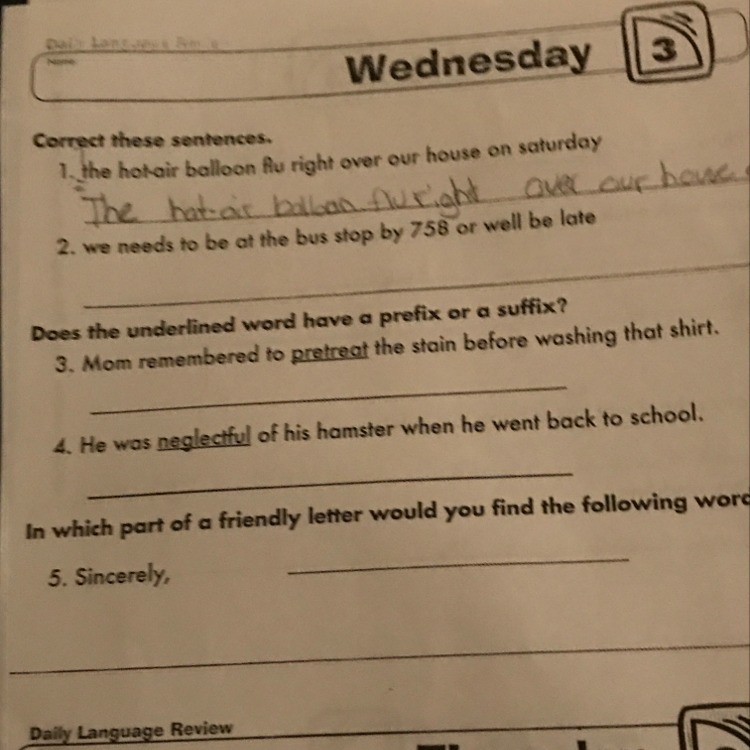 Daily Language Review
Name
Wednesday
3
Correct these sentences.
1. the hot-air balloon flu right over our house on saturday
The hot-air balloon flu right over our house
2. we needs to be at the bus stop by 758 or well be late
Does the underlined word have a prefix or a suffix?
3. Mom remembered to pretreat the stain before washing that shirt.
4. He was neglectful of his hamster when he went back to school.
In which part of a friendly letter would you find the following word
5. Sincerely,
Daily Language Review